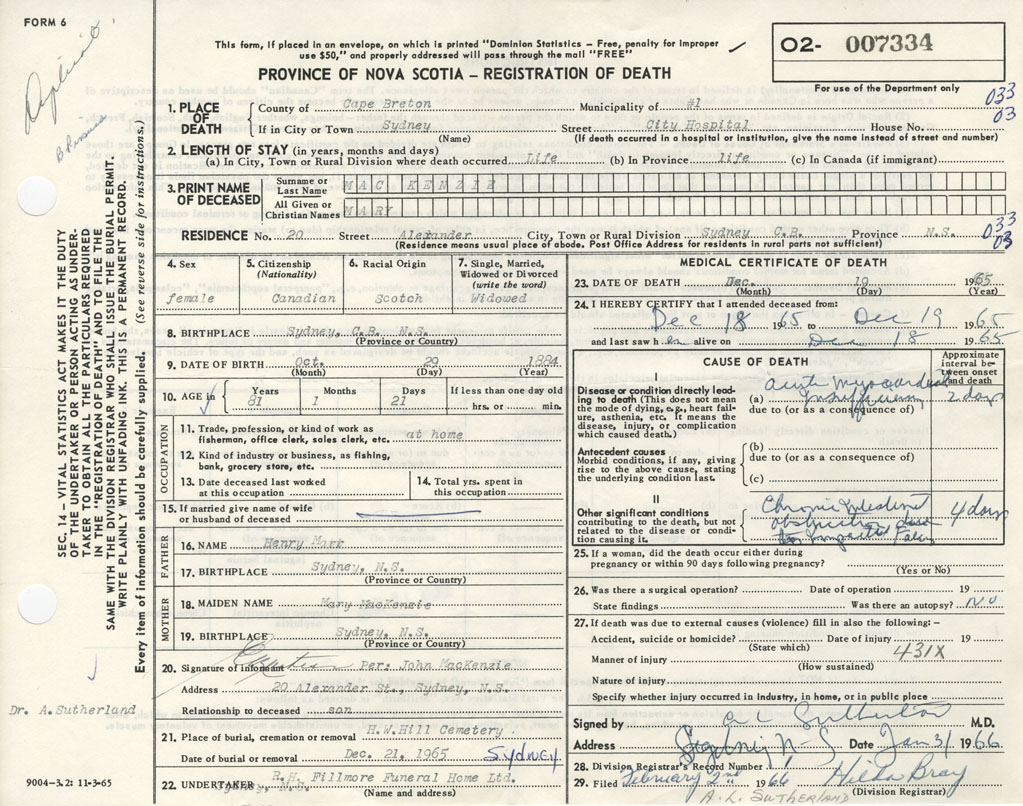 FORM 6
Duplicate
This form, if placed in an envelope, on which is printed "Dominion Statistics – Free, penalty for improper
use $50," and properly addressed will pass through the mail "FREE"
PROVINCE OF NOVA SCOTIA – REGISTRATION OF DEATH
02- 007334
For use of the Department only
033
03
1. PLACE OF DEATH
County of Cape Breton Municipality of #1
If in City or Town Sydney Street City Hospital House No.
(Name) (If death occurred in a hospital or institution, give the name instead of street and number)
2. LENGTH OF STAY (in years, months and days)
(a) In City, Town or Rural Division where death occurred Life (b) In Province life (c) In Canada (if immigrant)
3. PRINT NAME OF DECEASED
Surname or Last Name MAC KENZIE
All Given or Christian Names MARY
RESIDENCE No. 20 Street Alexander City, Town or Rural Division Sydney C.B. Province N.S.
(Residence means usual place of abode. Post Office Address for residents in rural parts not sufficient)
033
03
4. Sex
female
5. Citizenship
(Nationality)
Canadian
6. Racial Origin
Scotch
7. Single, Married,
Widowed or Divorced
(write the word)
Widowed
8. BIRTHPLACE Sydney, C.B. N.S.
(Province or Country)
9. DATE OF BIRTH Oct. 29 1884
(Month) (Day) (Year)
10. AGE in Years Months Days If less than one day old
81 1 21 hrs. or min.
OCCUPATION
11. Trade, profession, or kind of work as
fisherman, office clerk, sales clerk, etc. at home
12. Kind of industry or business, as fishing,
bank, grocery store, etc.
13. Date deceased last worked
at this occupation
14. Total yrs. spent in
this occupation
15. If married give name of wife
or husband of deceased
FATHER
16. NAME Henry
17. BIRTHPLACE Sydney, N.S.
(Province or Country)
MOTHER
18. MAIDEN NAME Mary MacKenzie
19. BIRTHPLACE Sydney, N.S.
(Province or Country)
20. Signature of informant Per: John MacKenzie
Address 20 Alexander St., Sydney, N.S.
Relationship to deceased son
21. Place of burial, cremation or removal H.W.Hill Cemetery
Date of burial or removal Dec. 21, 1965 SYDNEY
22. UNDERTAKER R.H. Fillmore Funeral Home Ltd.
Sydney, N.S.
(Name and address)
MEDICAL CERTIFICATE OF DEATH
23. DATE OF DEATH Dec. 19 1965
(Month) (Day) (Year)
24. I HEREBY CERTIFY that I attended deceased from:
Dec 18 1965 to Dec 19 1965
and last saw h er alive on Dec 18 1965
CAUSE OF DEATH
Approximate
interval be-
tween onset
and death
I
Disease or condition directly lead-
ing to death (This does not mean
the mode of dying, e.g., heart fail-
ure, asthenia, etc. It means the
disease, injury, or complication
which caused death.)
acute myocardial
(a) insufficiency 2 days
due to (or as a consequence of)
Antecedent causes
Morbid conditions, if any, giving
rise to the above cause, stating
the underlying condition last.
(b)
due to (or as a consequence of)
(c)
II
Other significant conditions
contributing to the death, but not
related to the disease or condi-
tion causing it.
Chronic intestinal
obstruction due 4 days
to impacted
25. If a woman, did the death occur either during
pregnancy or within 90 days following pregnancy?
(Yes or No)
26. Was there a surgical operation? Date of operation 19
State findings Was there an autopsy? No
27. If death was due to external causes (violence) fill in also the following: –
Accident, suicide or homicide? Date of injury 19
(State which) 431X
Manner of injury
(How sustained)
Nature of injury
Specify whether injury occurred in industry, in home, or in public place
Signed by A L Sutherland M.D.
Address Sydney N-S Date Jan 31 1966
28. Division Registrar's Record Number
29. Filed February 2nd 1966 Hilda Bray
(Division Registrar)
A. L. SUTHERLAND
SEC. 14 – VITAL STATISTICS ACT MAKES IT THE DUTY
OF THE UNDERTAKER OR PERSON ACTING AS UNDER-
TAKER TO OBTAIN ALL THE PARTICULARS REQUIRED
IN THE "REGISTRATION OF DEATH" AND TO FILE THE
SAME WITH THE DIVISION REGISTRAR WHO SHALL ISSUE THE BURIAL PERMIT.
WRITE PLAINLY WITH UNFADING INK. THIS IS A PERMANENT RECORD.
Every item of information should be carefully supplied. (See reverse side for instructions.)
Dr. A. Sutherland
9004-3.2: 11-3-65